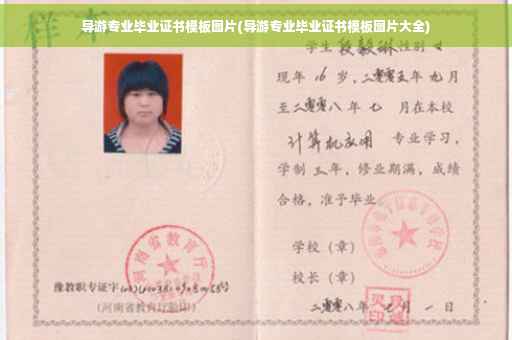 导游专业毕业证书模板图片(导游专业毕业证书模板图片大全)
样本
学生 段毅琳 性别 女
现年 16 岁，二零零五年 九月
至二零零八年 七 月在本校
计算机应用 专业学习，
学制 三 年，修业期满，成绩
合格，准予毕业
学校（章）
校长（章）
二零零八年 七 月 一 日
河南省教育厅
豫教职专证字
（河南省教育厅验印）